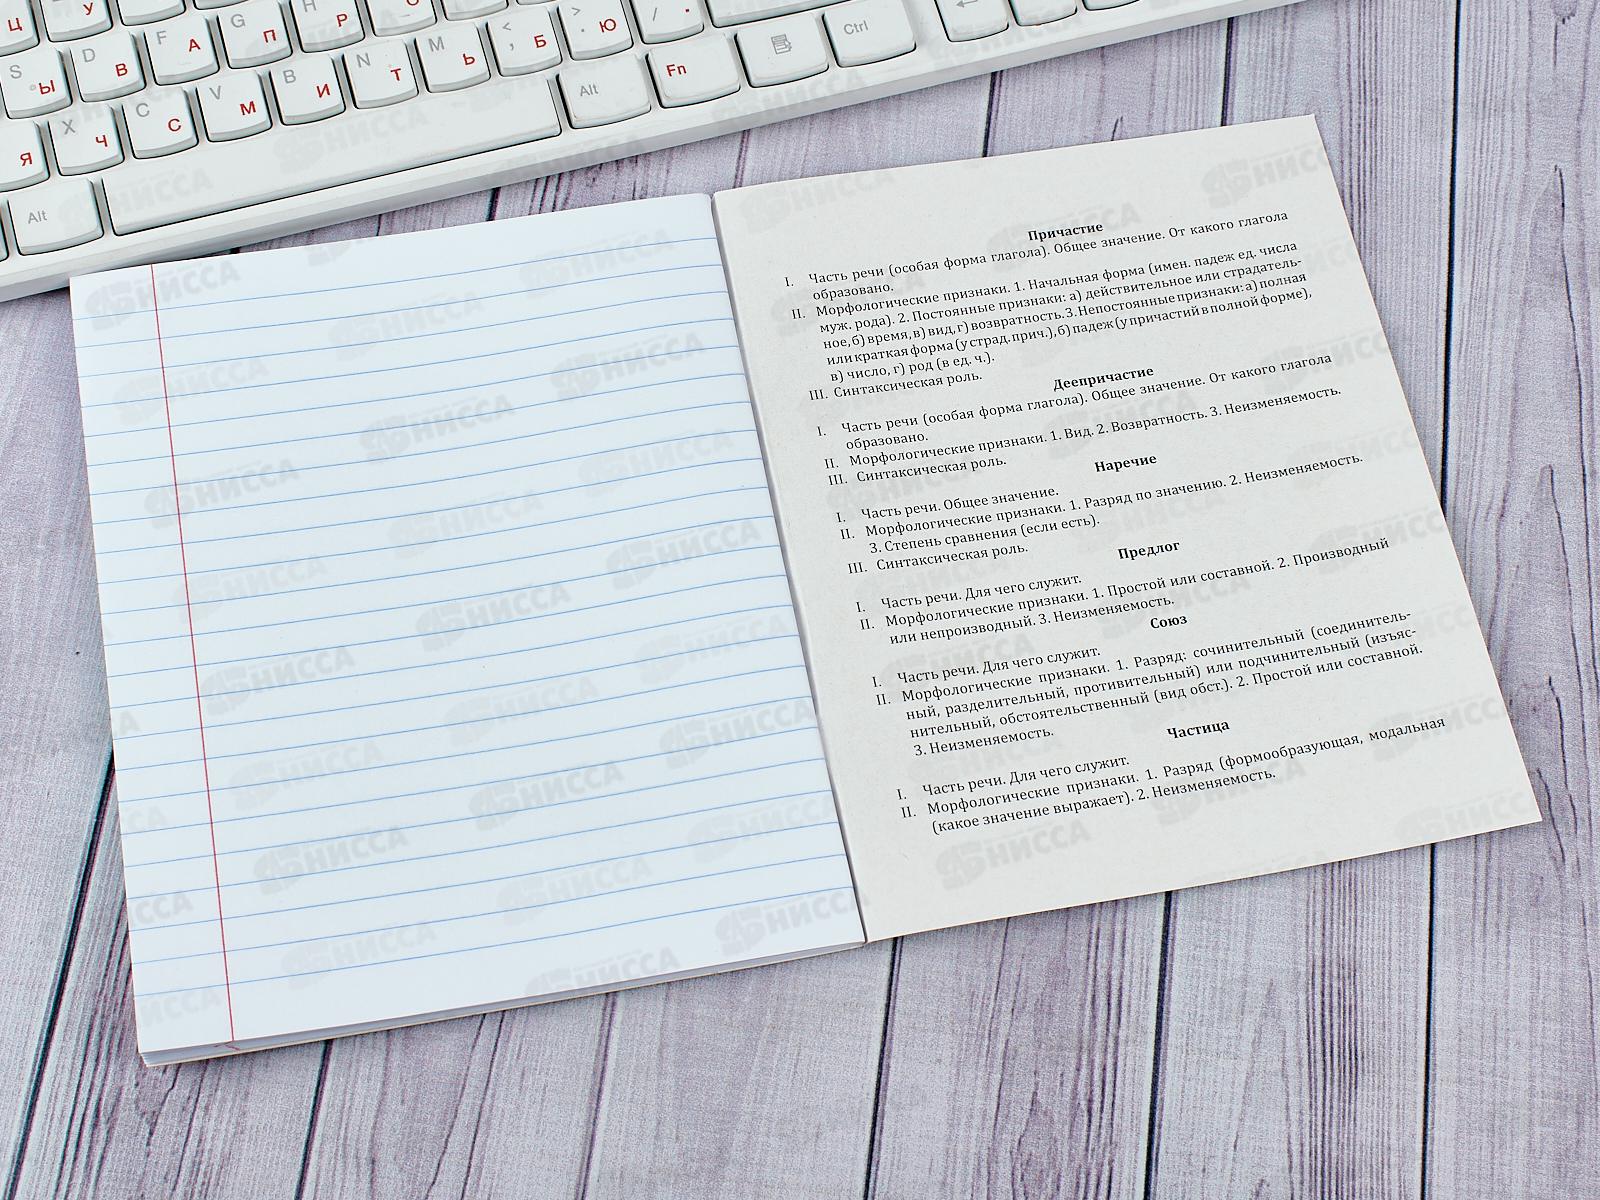 Ц У К Н О
S Ы D В F А G П H Р
Я X Ч C С V М B И N Т M Ь < , Б > . Ю / .
Alt Alt Fn Ctrl
Причастие
I. Часть речи (особая форма глагола). Общее значение. От какого глагола
образовано.
II. Морфологические признаки. 1. Начальная форма (имен. падеж ед. числа
муж. рода). 2. Постоянные признаки: а) действительное или страдатель-
ное, б) время, в) вид, г) возвратность. 3. Непостоянные признаки: а) полная
или краткая форма (у страд. прич.), б) падеж (у причастий в полной форме),
в) число, г) род (в ед. ч.).
III. Синтаксическая роль.
Деепричастие
I. Часть речи (особая форма глагола). Общее значение. От какого глагола
образовано.
II. Морфологические признаки. 1. Вид. 2. Возвратность. 3. Неизменяемость.
III. Синтаксическая роль.
Наречие
I. Часть речи. Общее значение.
II. Морфологические признаки. 1. Разряд по значению. 2. Неизменяемость.
3. Степень сравнения (если есть).
III. Синтаксическая роль.
Предлог
I. Часть речи. Для чего служит.
II. Морфологические признаки. 1. Простой или составной. 2. Производный
или непроизводный. 3. Неизменяемость.
Союз
I. Часть речи. Для чего служит.
II. Морфологические признаки. 1. Разряд: сочинительный (соединитель-
ный, разделительный, противительный) или подчинительный (изъяс-
нительный, обстоятельственный (вид обст.). 2. Простой или составной.
3. Неизменяемость.
Частица
I. Часть речи. Для чего служит.
II. Морфологические признаки. 1. Разряд (формообразующая, модальная
(какое значение выражает). 2. Неизменяемость.
НИССА